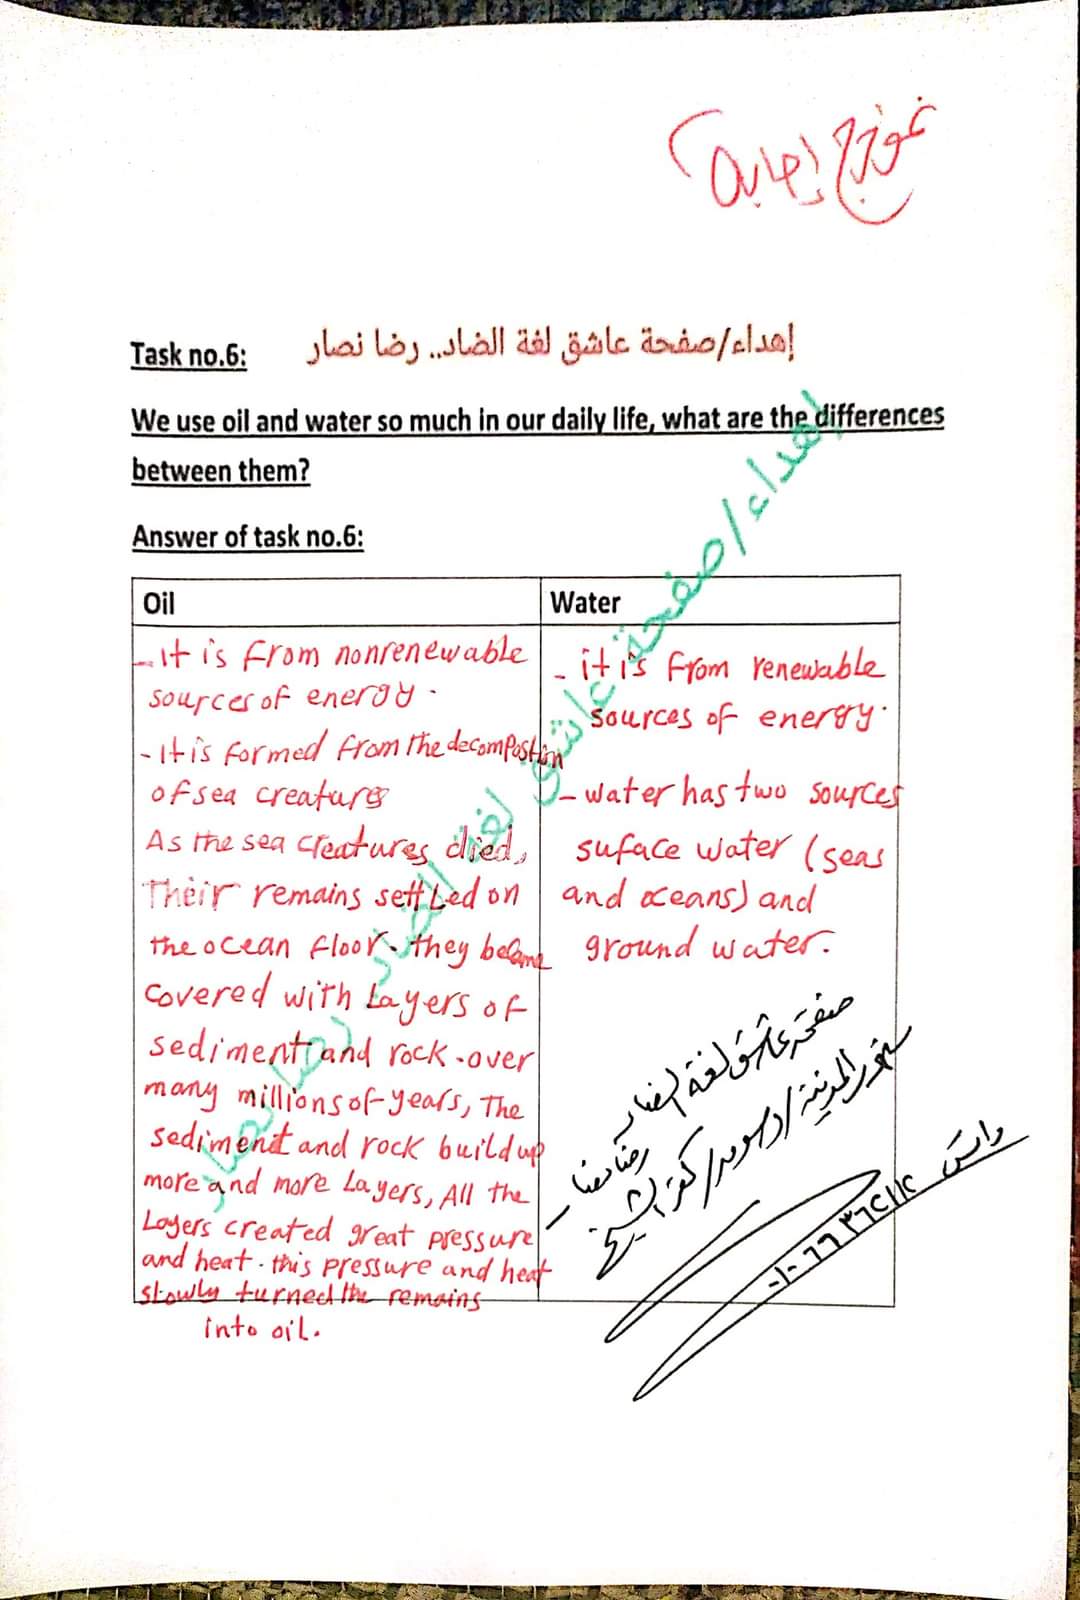 نموذج إجابة
Task no.6:
إهداء/صفحة عاشق لغة الضاد.. رضا نصار
We use oil and water so much in our daily life, what are the differences
between them?
Answer of task no.6:
Oil
- It is from nonrenewable
sources of energy.
- It is formed from the decompostion
of sea creatures
As the sea creatures died,
Their remains settled on
the ocean floor. they became
covered with Layers of
sediment and rock. over
many millions of years, The
sediment and rock build up
more and more Layers, All the
Layers created great pressure
and heat. this pressure and heat
slowly turned the remains
into oil.
Water
- it is from renewable
sources of energy.
- water has two sources
suface water (seas
and oceans) and
ground water.
إهداء/صفحة عاشق لغة الضاد رضا نصار
صفحة عاشق لغة الضاد
رضا نصار
كفر الشيخ
واتس